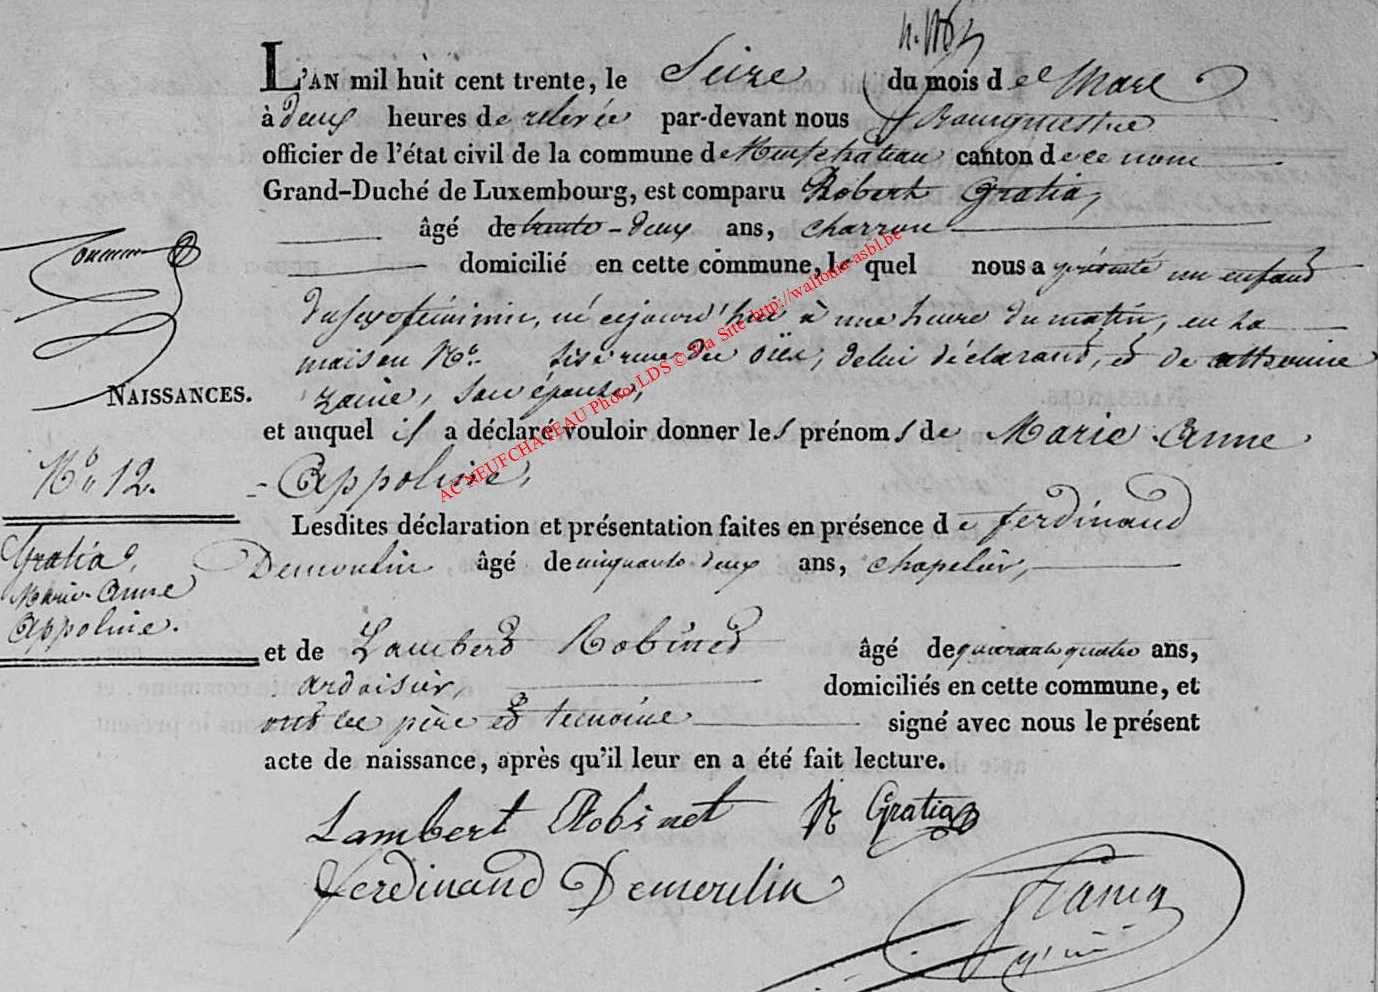 L'AN mil huit cent trente, le Seize du mois de Mars
à deux heures de relevée par-devant nous Bourgmestre
officier de l'état civil de la commune de Neufchateau canton de ce nom
Grand-Duché de Luxembourg, est comparu Robert Gratia,
âgé de trente-deux ans, charron
domicilié en cette commune, le quel nous a présenté un enfand
du sexe féminin, né cejourd'hui à une heure du matin, en sa
maison No. sise rue du , de lui déclarand, et de
, son épouse,
NAISSANCES.
et auquel il a déclaré vouloir donner les prénoms de Marie Anne
No. 12.
Appoline,
Lesdites déclaration et présentation faites en présence de ferdinand
Gratia,
Marie-Anne
Appoline.
Demoulin âgé de cinquante deux ans, chapelier,
et de Lambert Robinet âgé de quarante quatre ans,
ardoisier, domiciliés en cette commune, et
ont les père et temoins signé avec nous le présent
acte de naissance, après qu'il leur en a été fait lecture.
Lambert Robinet R Gratia
ferdinand Demoulin
AC NEUFCHATEAU Photo LDS © Via Site http://wallonia-asbl.be